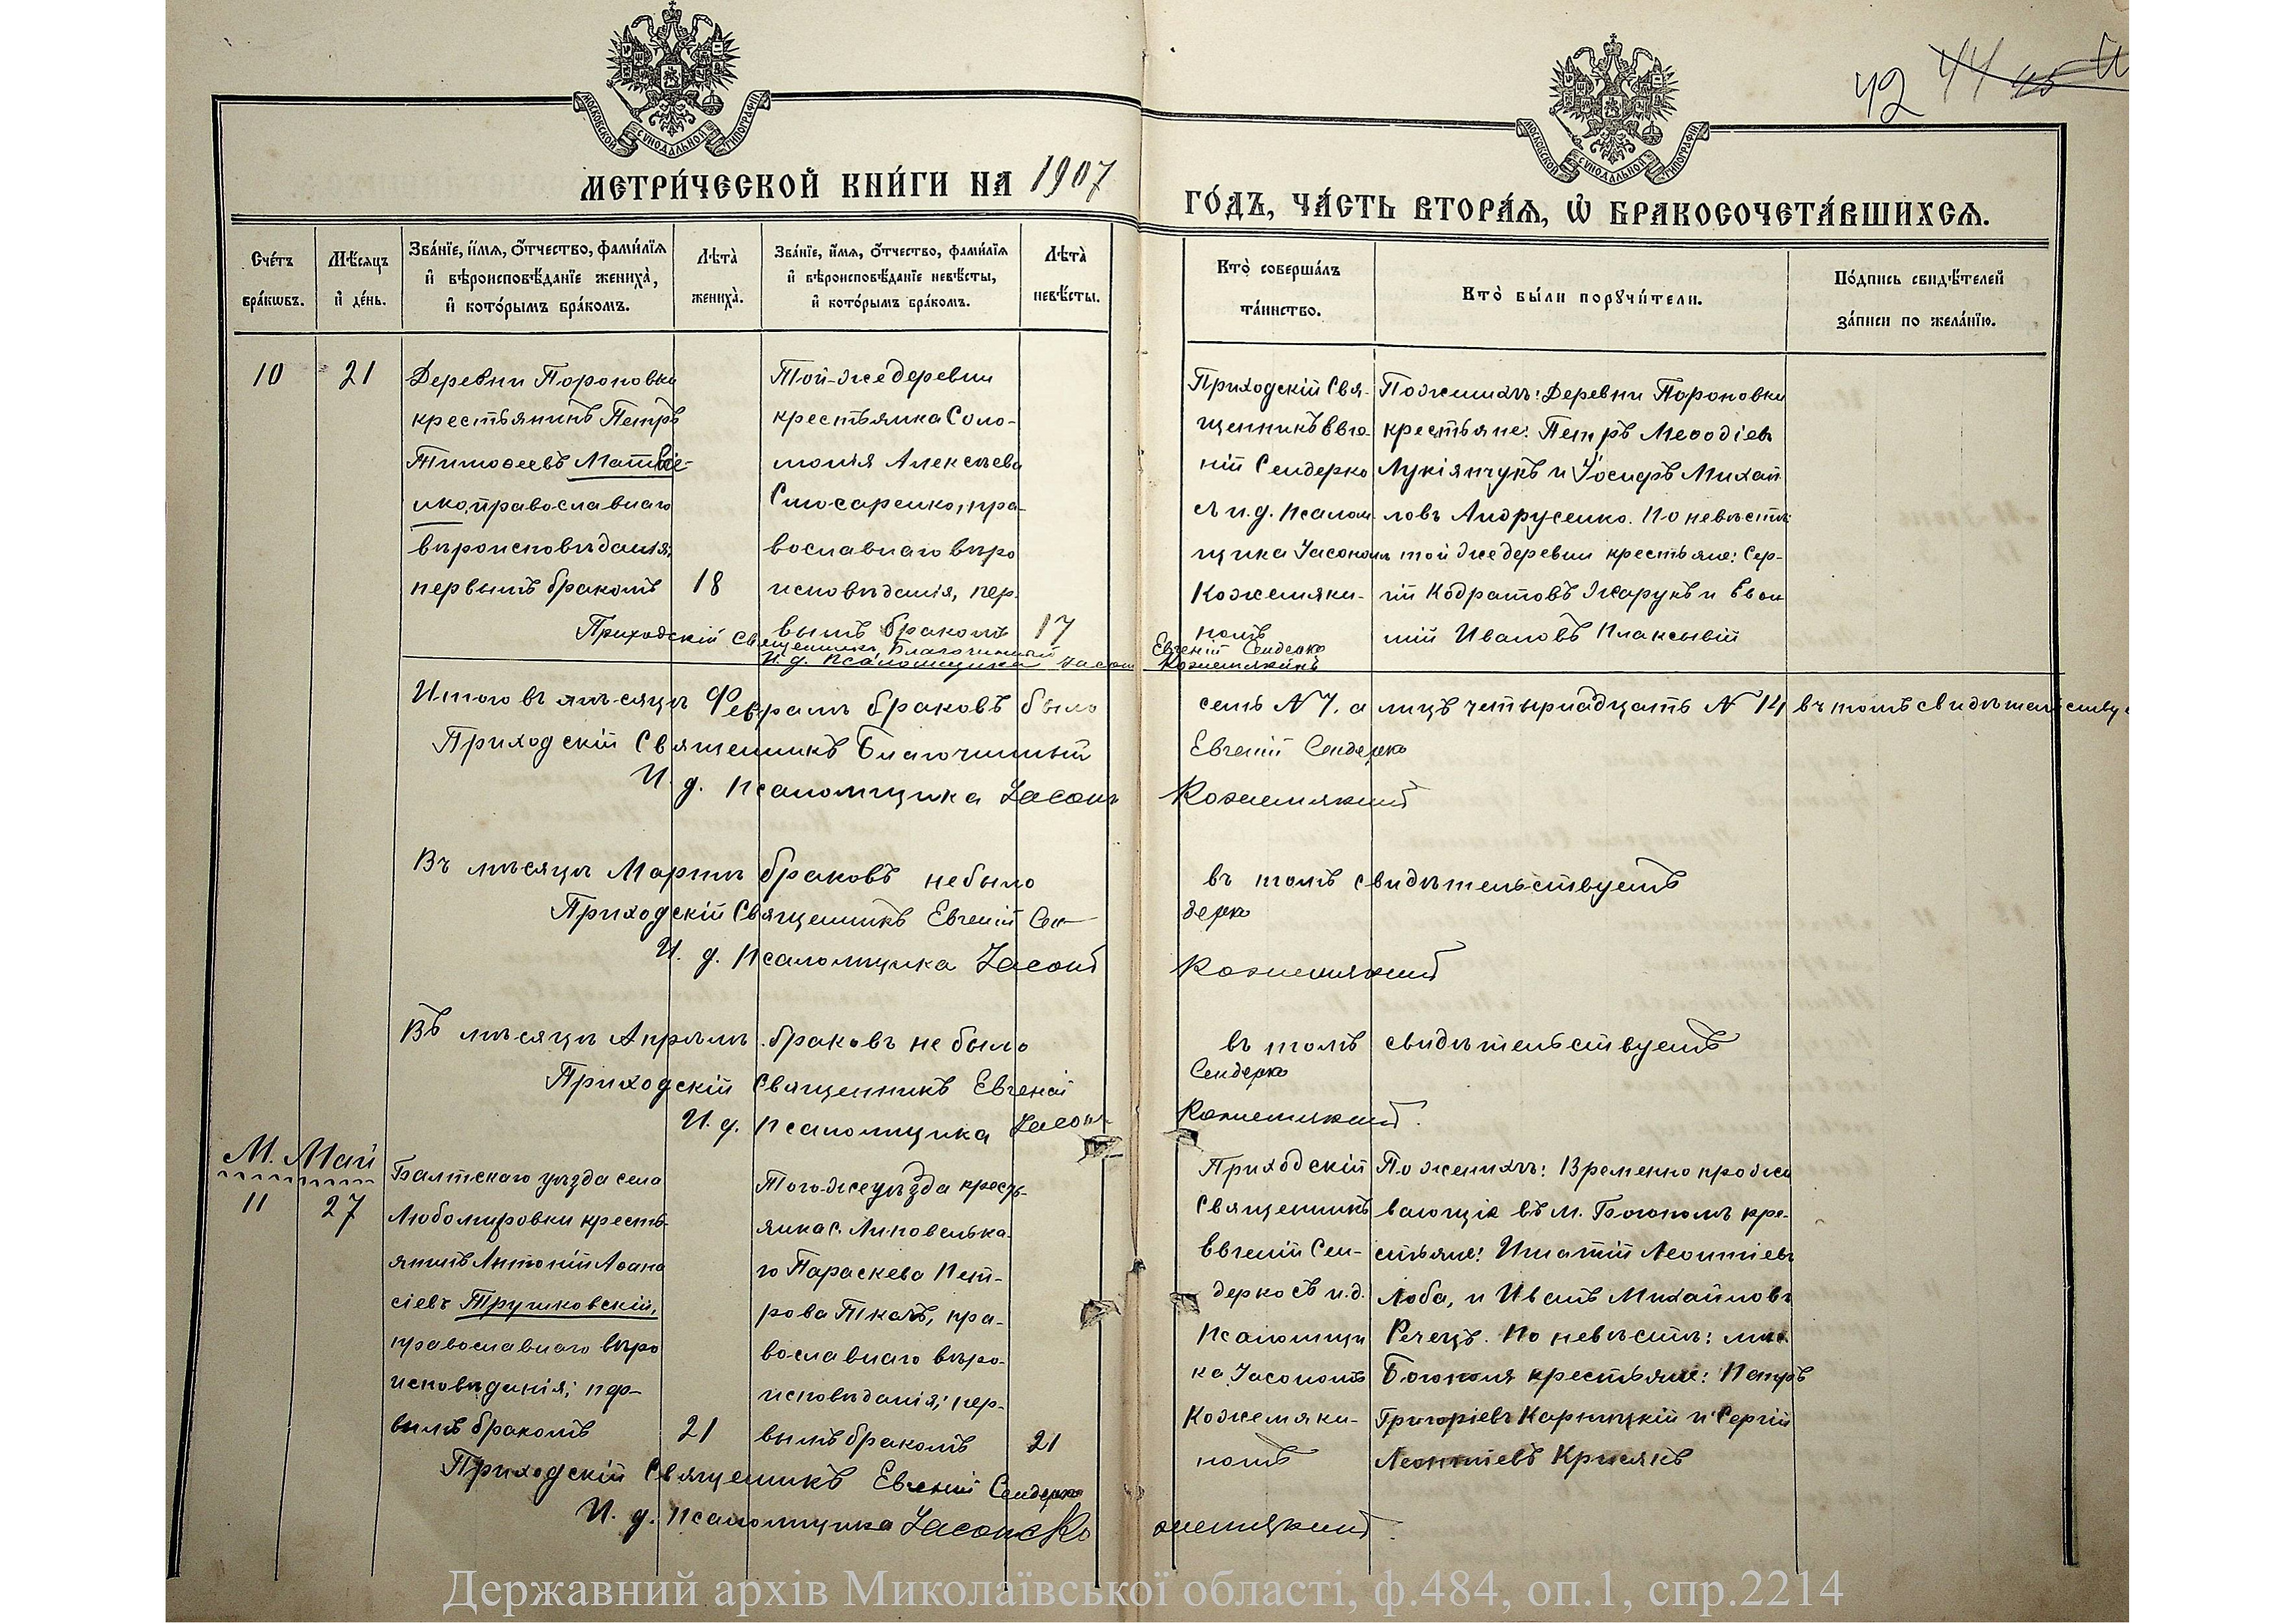 МОСКОВСКОЙ СѴНОДАЛЬНОЙ ТИПОГРАФІИ
МОСКОВСКОЙ СѴНОДАЛЬНОЙ ТИПОГРАФІИ
42 44 45
МЕТРИ́ЧЕСКОЙ КНИ́ГИ НА 1907
ГО́ДЪ, ЧА́СТЬ ВТОРА́Я, Ѽ БРАКОСОЧЕТА́ВШИХСЯ.
Сче́тъ
бра́кѡвъ.
Мѣ́сяцъ
и҆ де́нь.
Зва́нїе, и҆́мя, ѻ҆́тчество, фами́лїя
и҆ вѣроисповѣ́данїе жениха̀,
и҆ кото́рымъ бра́комъ.
Лѣта̀
жениха̀.
Зва́нїе, и҆́мя, ѻ҆́тчество, фами́лїя
и҆ вѣроисповѣ́данїе невѣ́сты,
и҆ кото́рымъ бра́комъ.
Лѣта̀
невѣ́сты.
Кто̀ соверша́лъ
та́инство.
Кто̀ бы́ли порꙋчи́тели.
По́дпись свидѣ́телей
за́писи по жела́нїю.
10
21
Деревни Пороновки
крестьянинъ Петръ
Тимоѳеевъ Матвіе-
нко, православнаго
вѣроисповѣданія,
первымъ бракомъ
18
Той-же деревни
крестьянка Соло-
монія Алексѣева
Слюсаренко, пра-
вославнаго вѣро
исповѣданія, пер-
вымъ бракомъ
17
Приходскій Свя-
щенникъ Евге-
ній Сендерко
съ и. д. псалом-
щика Іасономъ
Кожемяки-
номъ
По женихѣ: Деревни Пороновки
крестьяне: Петръ Меѳодіевъ
Лукіянчукъ и Іосифъ Михай
ловъ Андрусенко. По невѣстѣ:
той же деревни крестьяне: Сер-
гій Кодратовъ Жарукъ и Евѳи
мій Ивановъ Плаксывій
Приходскій Священникъ, Благочинный Евгеній Сендерко
И. д. Псаломщика Іасонъ Кожемякинъ
Итого въ мѣсяцѣ Февралѣ браковъ было семь № 7, а лицъ четырнадцать № 14 въ томъ свидѣтельству
Приходскій Священникъ Благочинный Евгеній Сендерко
И. д. псаломщика Іасонъ Кожемякинъ
Въ мѣсяцѣ Мартѣ браковъ не было въ томъ свидѣтельствуетъ
Приходскій Священникъ Евгеній Сен-дерко
И. д. псаломщика Іасонъ Кожемякинъ
Въ мѣсяцѣ Апрѣлѣ браковъ не было въ томъ свидѣтельствуетъ
Приходскій Священникъ Евгеній Сендерко
И. д. псаломщика Іасонъ Кожемякинъ.
М. Май
11
27
Балтскаго уѣзда села
Любомировки кресть-
янинъ Антоній Аѳана
сіевъ Трушковскій,
православнаго вѣро
исповѣданія; пер-
вымъ бракомъ
21
Того-же уѣзда кресть-
янка с. Липовенька-
го Параскева Пет-
рова Ткачъ, пра-
вославнаго вѣро-
исповѣданія; пер-
вымъ бракомъ
21
Приходскій
Священникъ
Евгеній Сен-
дерко съ и. д.
псаломщи
ка Іасономъ
Кожемяки-
номъ
По женихѣ: Временно прожи
вающіе въ м. Богополѣ кре-
стьяне: Игнатій Леонтіевъ
Лоба, и Иванъ Михайловъ
Речецъ. По невѣстѣ: мѣс.
Богополя крестьяне: Петръ
Григоріевъ Карницкій и Сергій
Леонтіевъ Крисякъ
Приходскій Священникъ Евгеній Сендерко
И. д. псаломщика Іасонъ Кожемякинъ.
Державний архів Миколаївської області, ф.484, оп.1, спр.2214